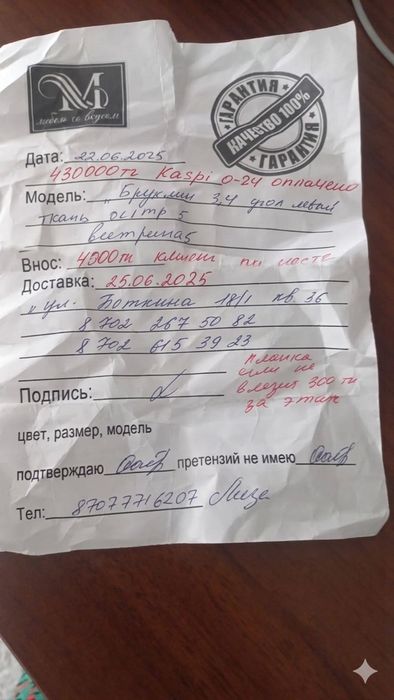 М
мебель со вкусом
ГАРАНТИЯ
КАЧЕСТВО 100%
ГАРАНТИЯ
Дата: 22.06.2025
430000тг Kaspi 0-24 оплачено
Модель: „Бруклин 3,4 угол левый
ткань
5
Внос: 4000тг клиент по месте
Доставка: 25.06.2025
ул. Боткина 18/1 кв 36
8 702 267 50 82
8 702 615 39 23
если не
влезит 300 тг
за этаж
Подпись:
цвет, размер, модель
подтверждаю претензий не имею
Тел: 87077716207